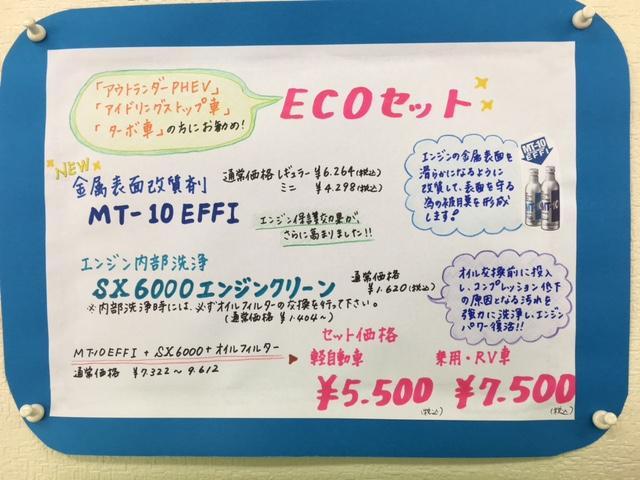 「アウトランダーPHEV」
「アイドリングストップ車」
「ターボ車」の方にお勧め!
ECOセット
NEW
金属表面改質剤
MT-10 EFFI
通常価格 レギュラー ¥6.264(税込)
ミニ ¥4.298(税込)
エンジン保護効果が
さらに高まりました!!
エンジンの金属表面を
滑らかになるように
改質して、表面を守る
為の被膜を形成
します!
MT-10
EFFI
エンジン内部洗浄
SX6000エンジンクリーン
通常価格
¥1.620(税込)
※内部洗浄時には、必ずオイルフィルターの交換を行って下さい。
(通常価格 ¥1.404~)
オイル交換前に投入
し、コンプレッション低下
の原因となる汚れを
強力に洗浄し、エンジン
パワー復活!!
MT10EFFI + SX6000 + オイルフィルター
通常価格 ¥7.322~9.612
セット価格
軽自動車
¥5.500
(税込)
乗用・RV車
¥7.500
(税込)